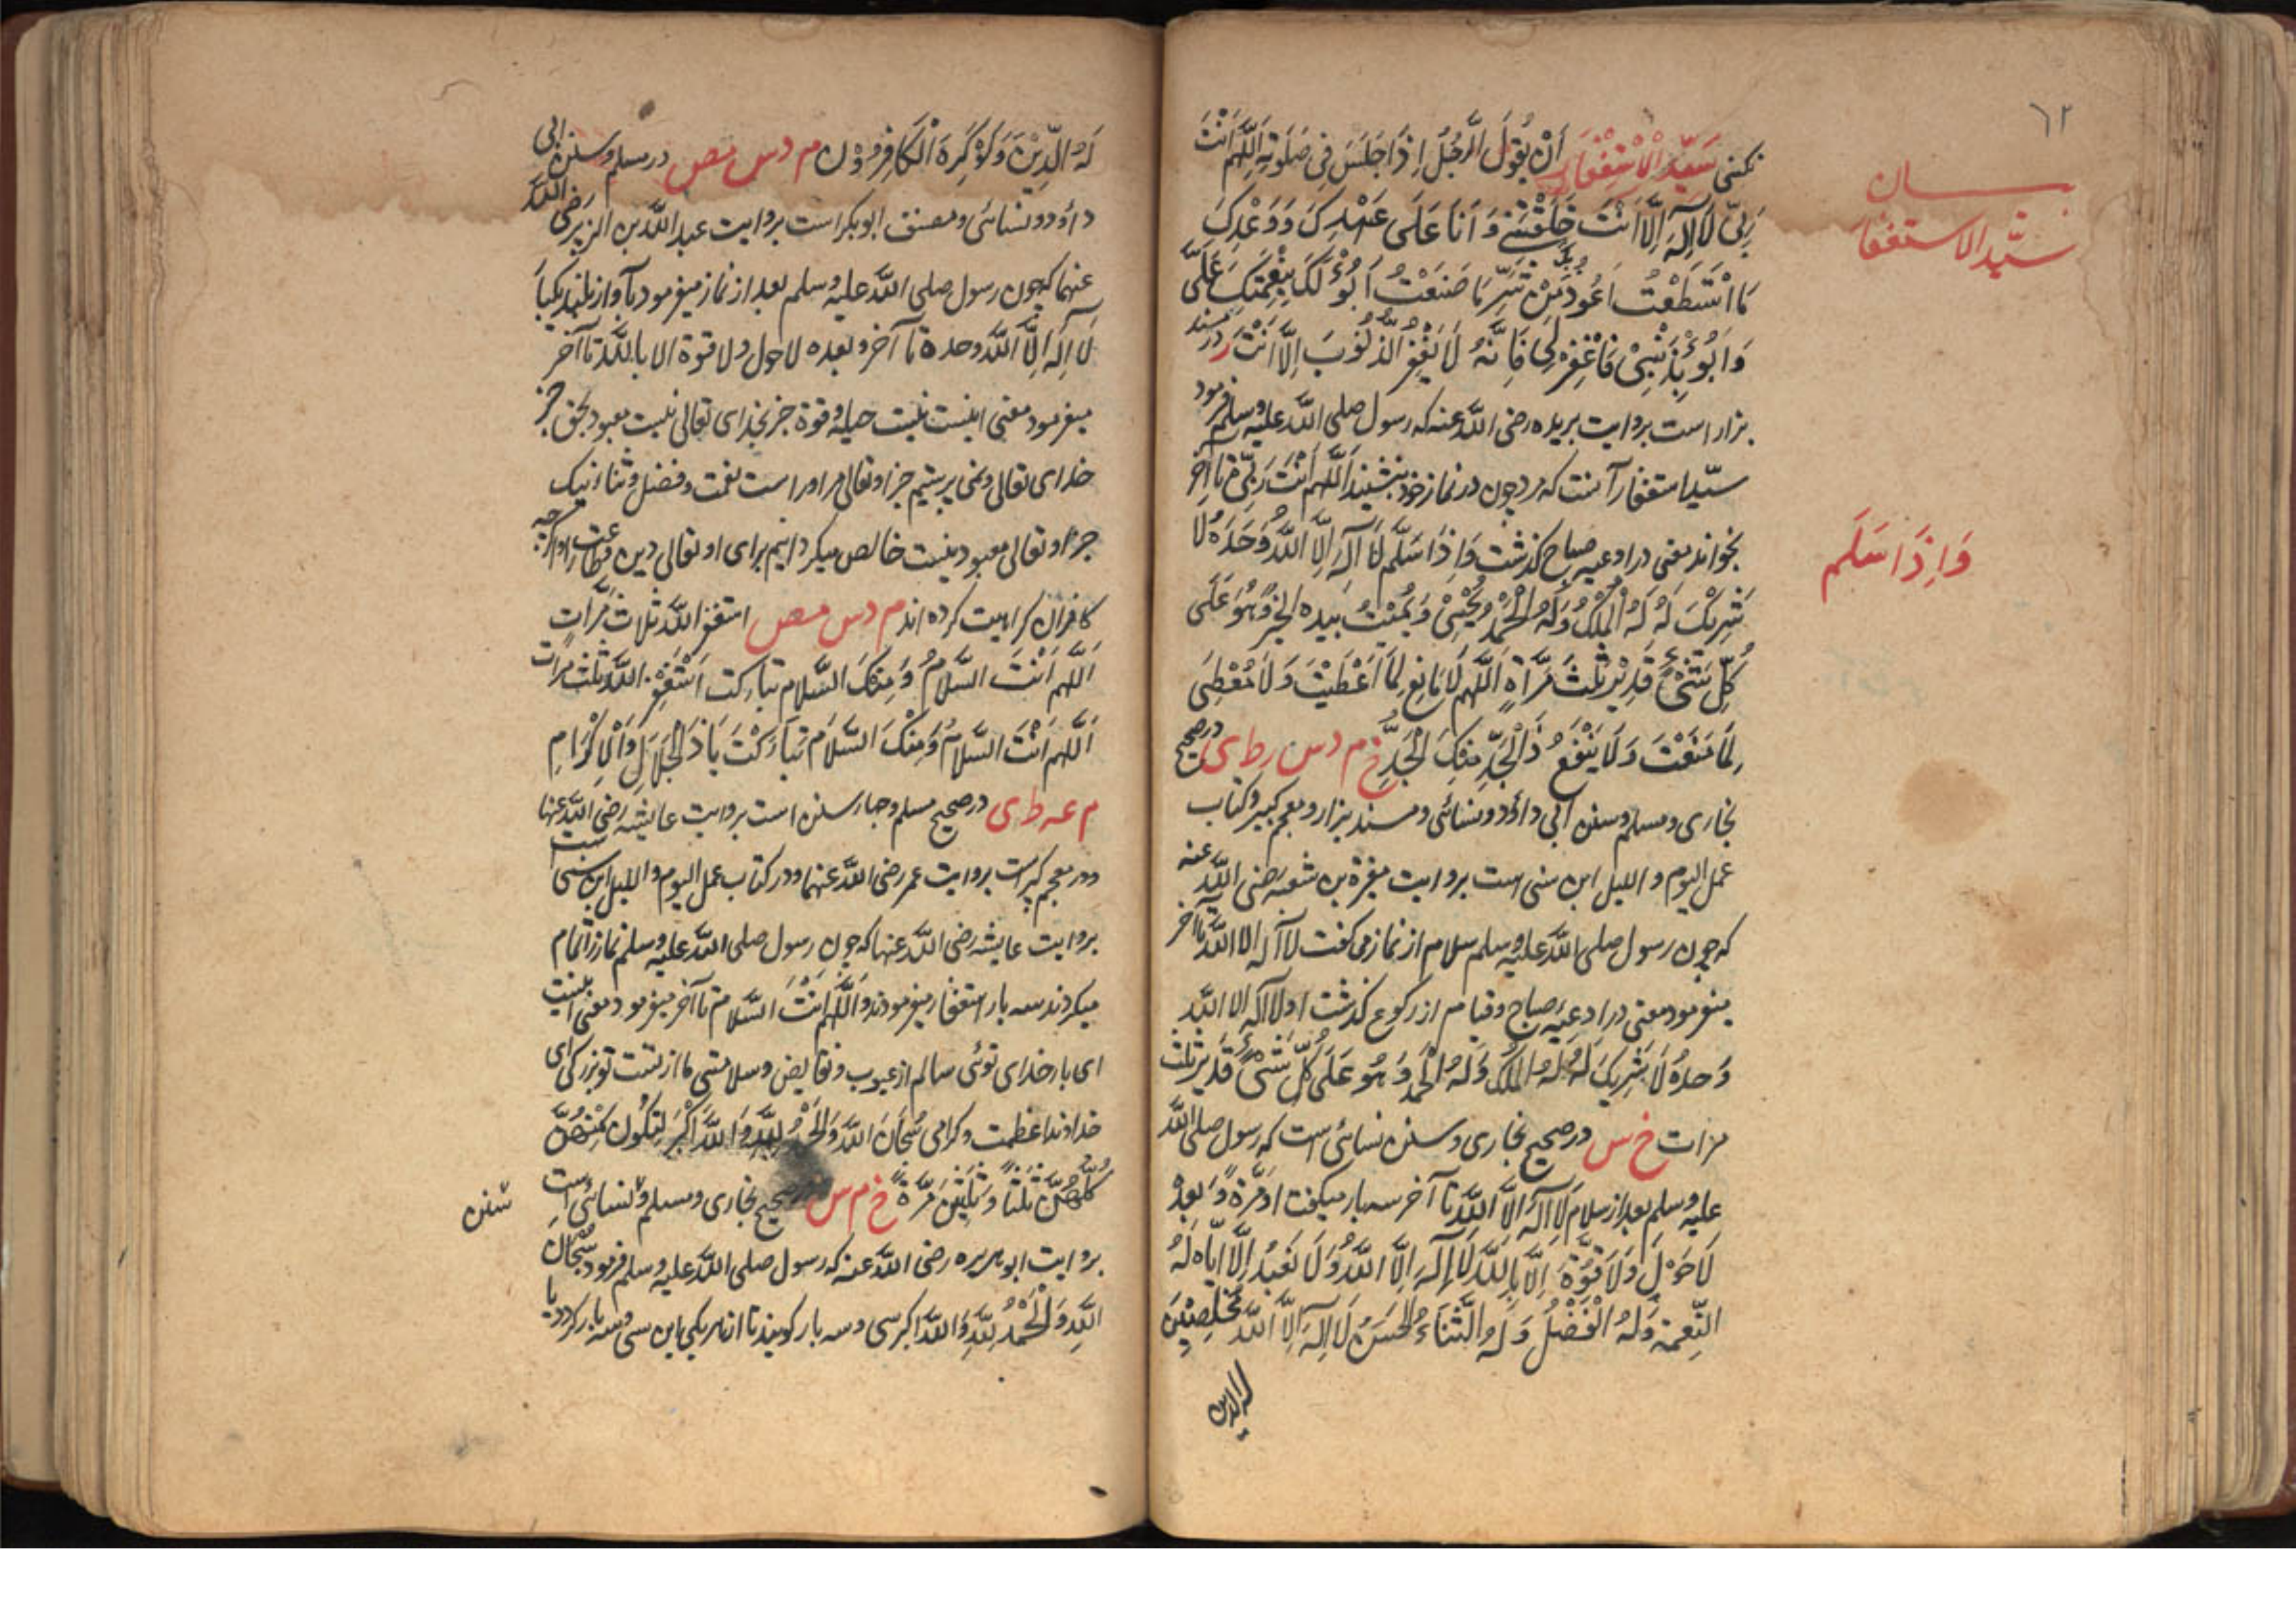 ٦٢
بیان
سیّد الاستغفار
نکنی سَیِّدُ الْاِسْتِغْفَارِ اَنْ یَقُولَ الرَّجُلُ اِذَا جَلَسَ فِی صَلٰوتِهِ اَللّٰهُمَّ اَنْتَ
رَبِّی لَا اِلٰهَ اِلَّا اَنْتَ خَلَقْتَنِی وَ اَنَا عَلَی عَهْدِکَ وَ وَعْدِکَ
مَا اسْتَطَعْتُ اَعُوذُ بِکَ مِنْ شَرِّ مَا صَنَعْتُ اَبُوْءُ لَکَ بِنِعْمَتِکَ عَلَیَّ
وَ اَبُوْءُ بِذَنْبِیْ فَاغْفِرْ لِی فَاِنَّهُ لَا یَغْفِرُ الذُّنُوْبَ اِلَّا اَنْتَ ر در مسند
بزار است بروایت بریده رضی اللّه عنه که رسول صلی اللّه علیه وسلم فرمود
سیّد استغفار آنست که مرد چون در نماز خود بنشیند اَللّٰهُمَّ اَنْتَ رَبِّی تا آخر
بخواند معنی در ادعیه صباح گذشت وَ اِذَا سَلَّمَ لَا اِلٰهَ اِلَّا اللّٰهُ وَحْدَهُ لَا
وَ اِذَا سَلَّم
شَرِیْکَ لَهُ لَهُ الْمُلْکُ وَلَهُ الْحَمْدُ یُحْیِیْ وَ یُمِیْتُ بِیَدِهِ الْخَیْرُ وَهُوَ عَلَی
کُلِّ شَیْءٍ قَدِیْرٌ ثَلٰثَ مَرَّاةٍ اَللّٰهُمَّ لَا مَانِعَ لِمَا اَعْطَیْتَ وَ لَا مُعْطِیَ
لِمَا مَنَعْتَ وَ لَا یَنْفَعُ ذَا الْجَدِّ مِنْکَ الْجَدُّ خ م د س ر ط ی در صحیح
بخاری و مسلم و سنن ابی داؤد و نسائی و مسند بزار و معجم کبیر و کتاب
عمل الیوم و اللیل ابن سنی است بروایت مغیرة بن شعبه رضی اللّه عنه
که چون رسول صلی اللّه علیه وسلم سلام از نماز می گفت لا آله الا اللّه تا آخر
میفرمود معنی در ادعیّه صباح و قیام از رکوع گذشت اولا آله الا اللّه
وَحدهُ لَا شَرِیکَ لَهُ لَهُ الْمُلْکُ وَلَهُ الْحَمْدُ وَ هُوَ عَلَی کُلِّ شَیْءٍ قَدِیْرٌ ثلث
مرات خ س در صحیح بخاری و سنن نسائی است که رسول صلی اللّه
علیه وسلم بعد از سلام لَا اِلٰهَ اِلَّا اللّٰهُ تا آخر سه بار میگفت او مَرَّةً وَ بعدهُ
لَا حَوْلَ وَ لَا قُوَّةَ اِلَّا بِاللّٰهِ لَا اِلٰهَ اِلَّا اللّٰهُ وَ لَا نَعْبُدُ اِلَّا اِیَّاهُ لَهُ
النِّعْمَةُ وَلَهُ الْفَضْلُ وَ لَهُ الثَّنَاءُ الْحَسَنُ لَا اِلٰهَ اِلَّا اللّٰهُ مُخْلِصِیْنَ
له الدین
لَهُ الدِّیْنَ وَلَوْ کَرِهَ الْکَافِرُوْنَ م د س مص در مسلم و سنن ابی
داؤد و نسائی و مصنف ابو بکر است بروایت عبد اللّه بن الزبیر رضی اللّه
عنهما که چون رسول صلی اللّه علیه وسلم بعد از نماز میفرمود بآواز بلند یکبار
لَا اِلٰهَ اِلَّا اللّٰه وحده تا آخر و بعده لا حول و لا قوة الا باللّه تا آخر
میفرمود معنی اینست نیست حیله و قوة جز بخدای تعالی نیست معبود بحق جز
خدای تعالی و نمی پرستیم جز او تعالی مر او راست نعمت و فضل و ثناء نیک
جز او تعالی معبود نیست خالص میکردانیم برای او تعالی دین و طاعت را اگرچه
کافران کراهیت کرده اند م د س مص استغفر اللّه ثلاث مَرَّاتٍ
اَللّٰهُمَّ اَنْتَ السَّلَامُ وَ مِنْکَ السَّلَام تبارکت اَسْتَغْفِرُ اللّٰه ثلٰث مرات
اَللّٰهُمَّ اَنْتَ السَّلَامُ وَمِنْکَ السَّلَام تَبَارَکْتَ یَا ذَا الْجَلَالِ وَالْاِکْرَامِ
م عه ط ی در صحیح مسلم و چهار سنن است بروایت عایشه رضی اللّه عنها
و در معجم کبیر است بروایت عمر رضی اللّه عنهما و در کتاب عمل الیوم و اللیل ابن سنی است
بروایت عایشه رضی اللّه عنها که چون رسول صلی اللّه علیه وسلم نماز را تمام
میکردند سه بار استغفار میفرمودند و اَللّٰهُمَّ اَنْتَ السَّلَام تا آخر میفرمود معنی اینست
ای بار خدای توئی سالم از عیوب و نقایص و سلامتی ما از تست تو بزرکی ای
خداوند عظمت و کرامی سُبْحَانَ اللّٰهِ وَالْحَمْدُ لِلّٰهِ وَ اللّٰهُ اَکْبَرُ لِیَکُوْنَ مِنْهُنَّ
کُلُّهُنَّ ثَلٰثًا وَّ ثَلٰثِیْنَ مَرَّةً خ م س در صحیح بخاری و مسلم و نسائی است
سنن
بروایت ابو هریره رضی اللّه عنه که رسول صلی اللّه علیه وسلم فرمود سُبْحَانَ
اللّٰهِ وَ الْحَمْدُ لِلّٰهِ وَ اللّٰهُ اکبر سی و سه بار کویند تا از هر یکی باین سی و سه بار کردد یا